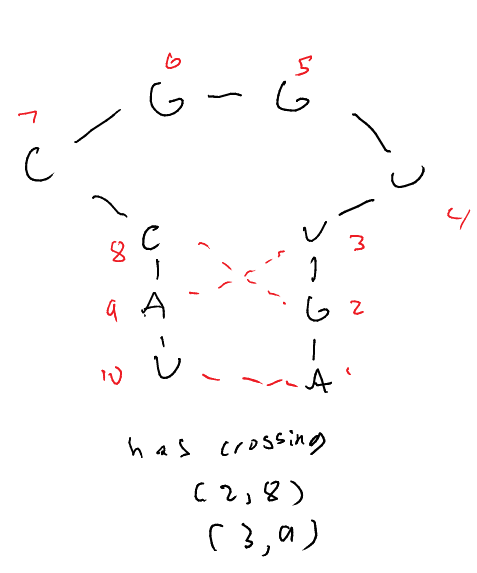 6 5
G G
7
C U
4
8 C U 3
9 A G 2
10 U A 1
has crossing
(2,8)
(3,9)